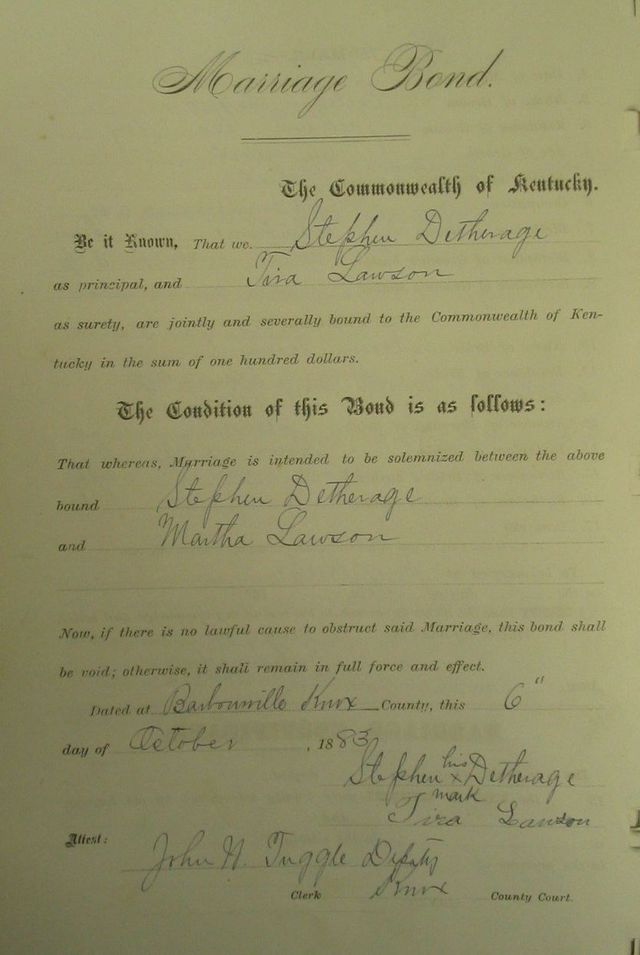 Marriage Bond.
The Commonwealth of Kentucky.
Be it Known, That we. Stephen Detherage
as principal, and Tira Lawson
as surety, are jointly and severally bound to the Commonwealth of Ken-
tucky in the sum of one hundred dollars.
The Condition of this Bond is as follows:
That whereas, Marriage is intended to be solemnized between the above
bound Stephen Detherage
and Martha Lawson
Now, if there is no lawful cause to obstruct said Marriage, this bond shall
be void; otherwise, it shall remain in full force and effect.
Dated at Barbourville Knox County, this 6"
day of October, 1883
Stephen his x Detherage
mark
Tira Lawson
Attest: John N. Tuggle Deputy
Clerk Knox County Court.